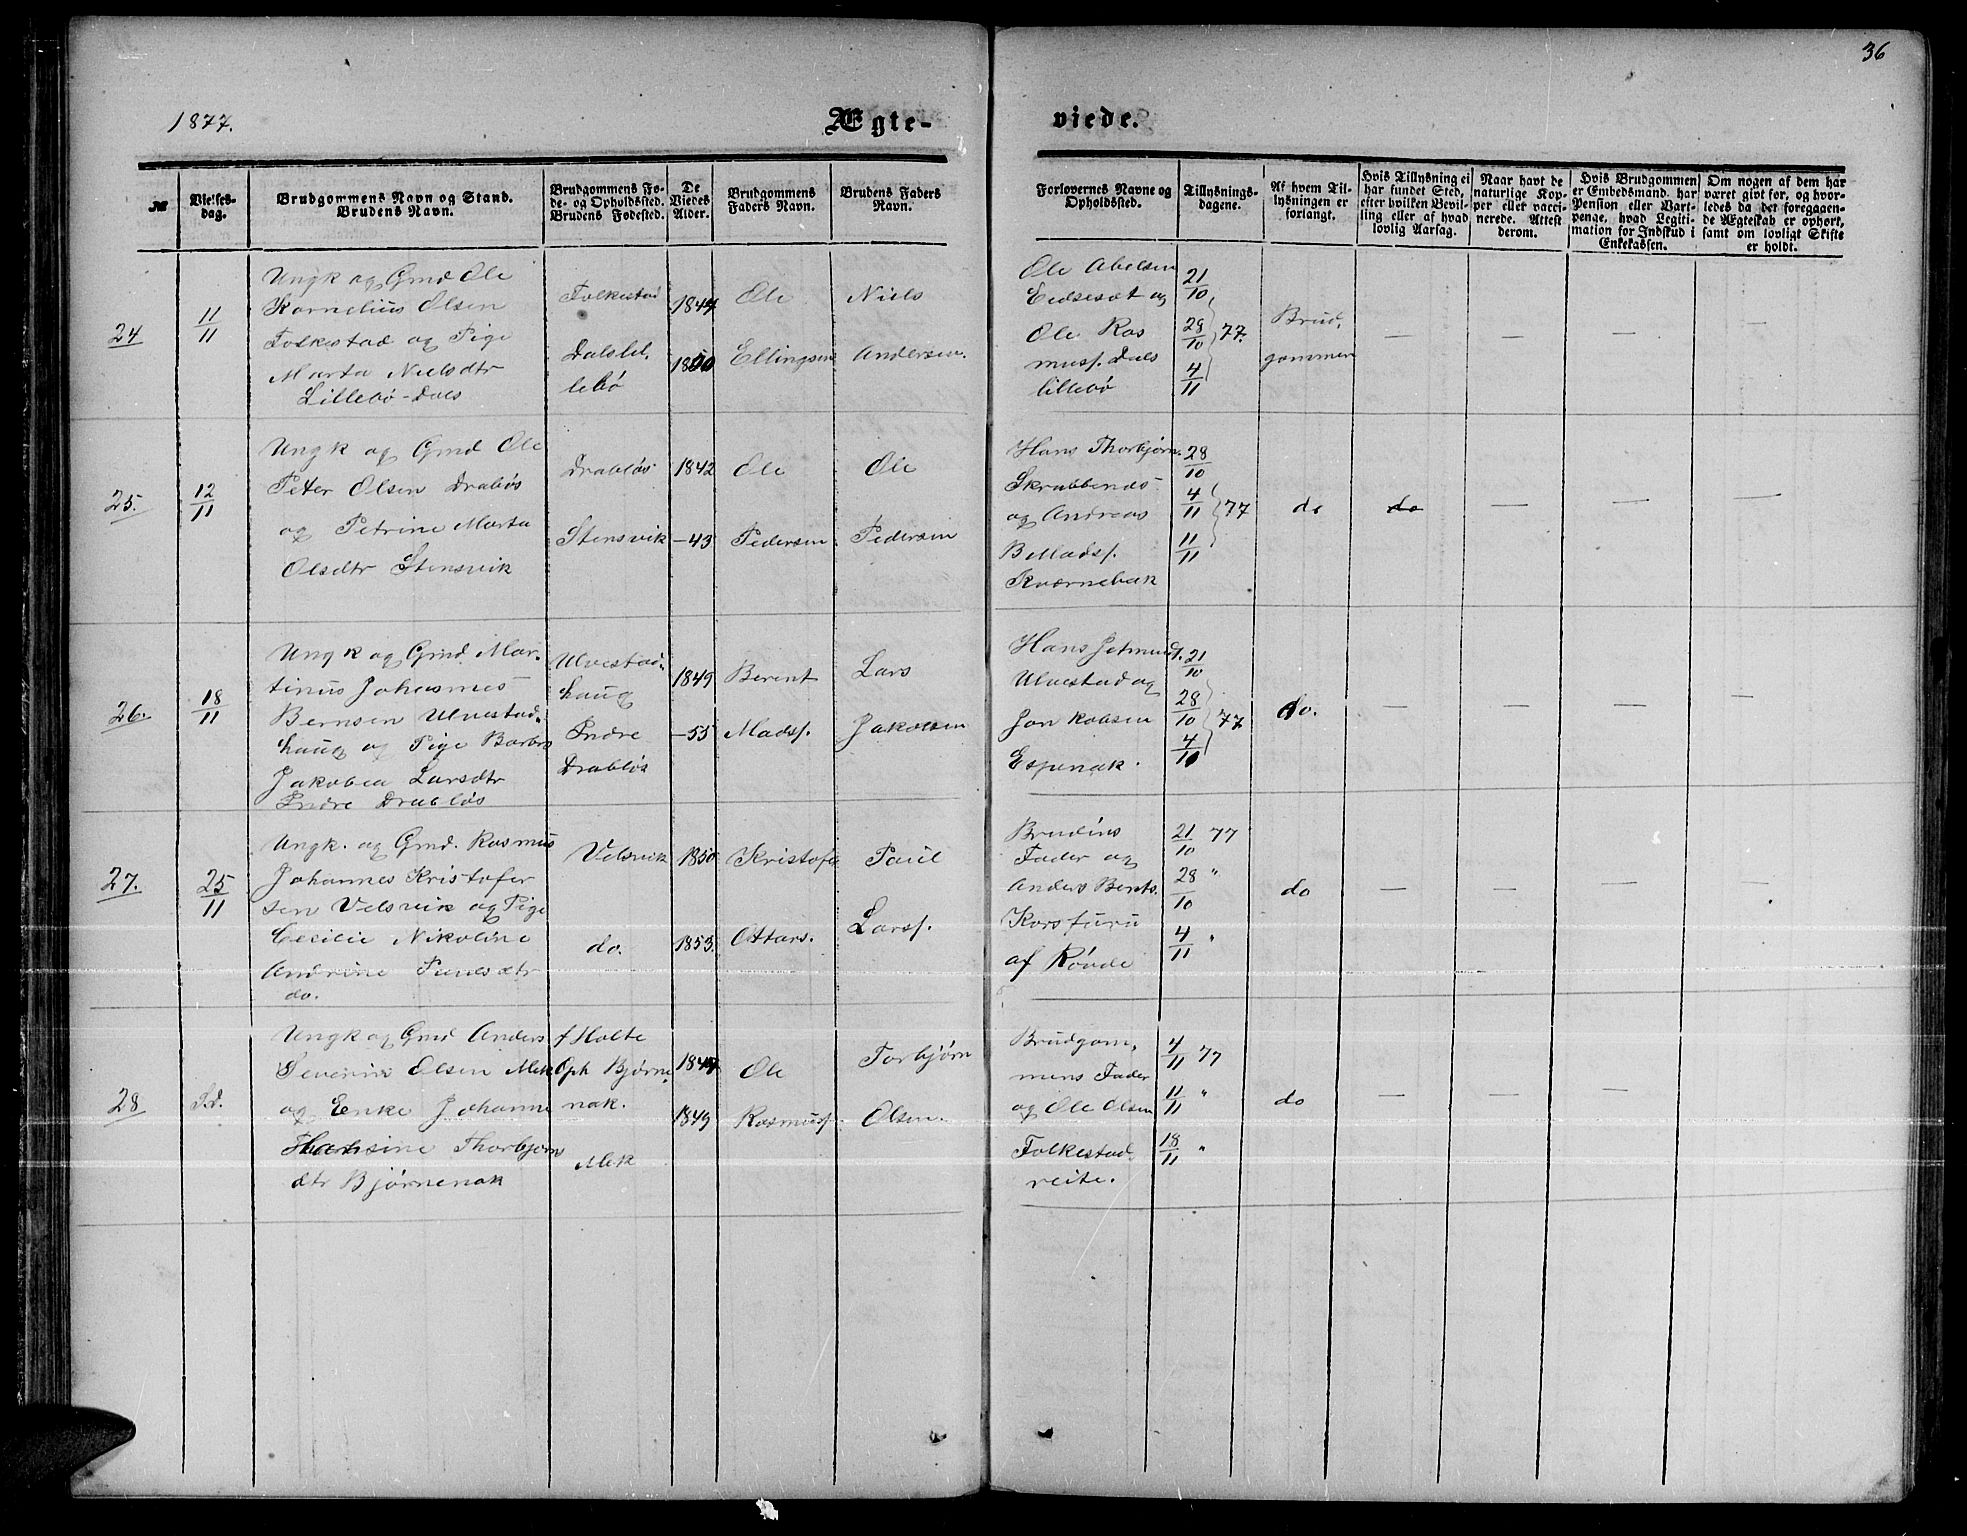 36
1877.
Ægte-
viede.
№
Vielses-
dag.
Brudgommens Navn og Stand.
Brudens Navn.
Brudgommens Fø-
de- og Opholdssted.
Brudens Fødested.
De
Viedes
Alder.
Brudgommens
Faders Navn.
Brudens Faders
Navn.
Forlovernes Navne og
Opholdssted.
Tillysnings-
dagene.
Af hvem Til-
lysningen er
forlangt.
Hvis Tillysning ei
har fundet Sted,
efter hvilken Bevil-
ling eller af hvad
lovlig Aarsag.
Naar havt de
naturlige Kop-
per eller vacci-
nerede. Attest
derom.
Hvis Brudgommen
er Embedsmand, har
Pension eller Vart-
penge, hvad Legiti-
mation for Indskud i
Enkekassen.
Om nogen af dem har
været givt før, og hvor-
ledes da det foregaaen-
de Ægteskab er ophørt,
samt om lovligt Skifte
er holdt.
24
11/11
Ungk og Gmd Ole
Kornelius Olsen
Folkestad og Pige
Marta Nielsdtr
Lillebø-Dals
Folkestad
Dalslil,
lebø
1844
1850
Ole
Ellingsen
Niels
Andersen.
Ole Abelsen
Eidseset og
Ole Ras
musf. Dals
lillebø
21/10
28/10 77.
4/11
Brud,
gommen
— — — —
25.
12/11
Ungk og Gmd Ole
Peter Olsen Drabløs
og Petrine Marta
Olsdtr Stensvik
Drabløs
Stensvik
1842
-43
Ole
Pedersen
Ole
Pedersen
Hans Thorbjørn.
Skrubbends
og Andreas
B Madsf.
Kvernebak
28/10
4/11 77
11/11
do
do
— — —
26.
18/11
Ungk og Gmd. Mar,
tinus Johannes
Bernsen Ulvestad,
haug og Pige Barbro
Jakobea Larsdtr
Indre Drabløs
Ulvestad,
haug
Indre
Drabløs
1849
-55
Berent
Madsf.
Lars
Jakobsen
Hans Jetmundf.
Ulvestad og
Jon
Espenak.
21/10
28/10 77
4/10
do.
— — — —
27.
25/11
Ungk. og Gmd. Rasmus
Johannes Kristofer
sen Velsvik og Pige
Cecilie Nikoline
Andrine Paulsdtr
do.
Velsvik
do.
1850
1853.
Kristofer
Ottars.
Paul
Larsf.
Brudens
Fader og
Anders Bents.
Korsfuru
af Røvde
21/10 77
28/10 "
4/11 "
do
— — — —
28
S.d.
Ungk og Gmd Anders
Severin Olsen Mek
og Enke Johanne
Hansine Thorbjørn
dtr Bjørnenak
f Holte
Oph Bjørne,
nak.
Mek
1847
1849
Ole
Rasmusf.
Torbjørn
Olsen.
Brudgom,
mens Fader
og Ole Olsen
Folkestad,
reite.
4/11 77
11/11 "
18/11 "
do
— — —